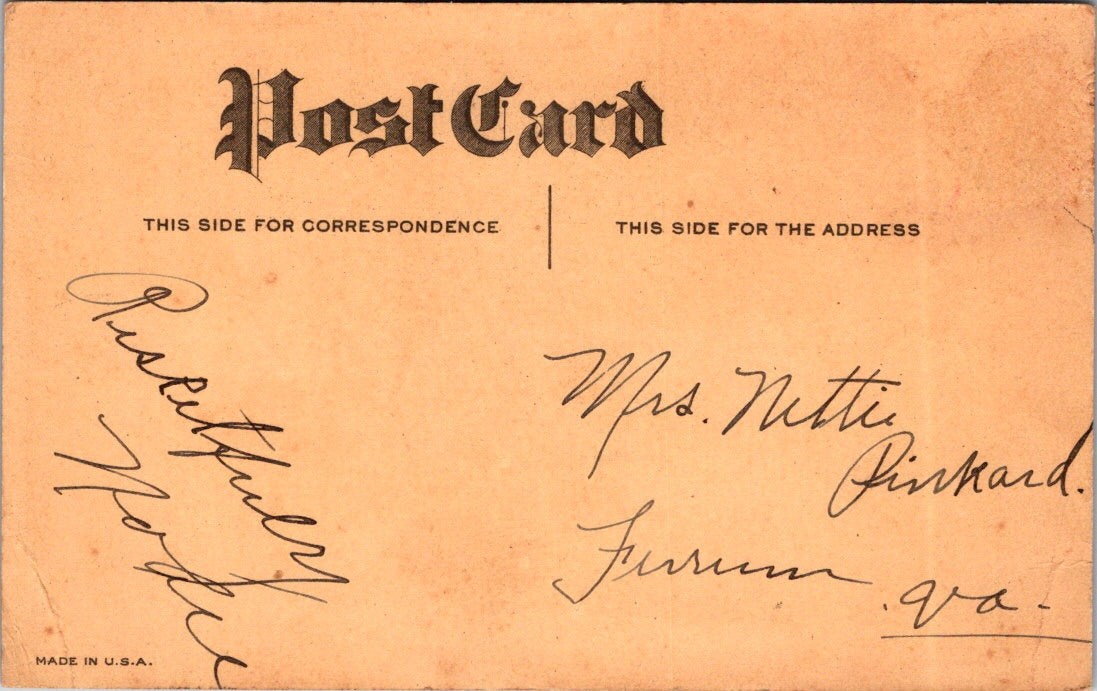 Post Card
THIS SIDE FOR CORRESPONDENCE
THIS SIDE FOR THE ADDRESS
Respectfully
Mrs. Nettie
Pinkard.
Ferrum
Va.
MADE IN U.S.A.